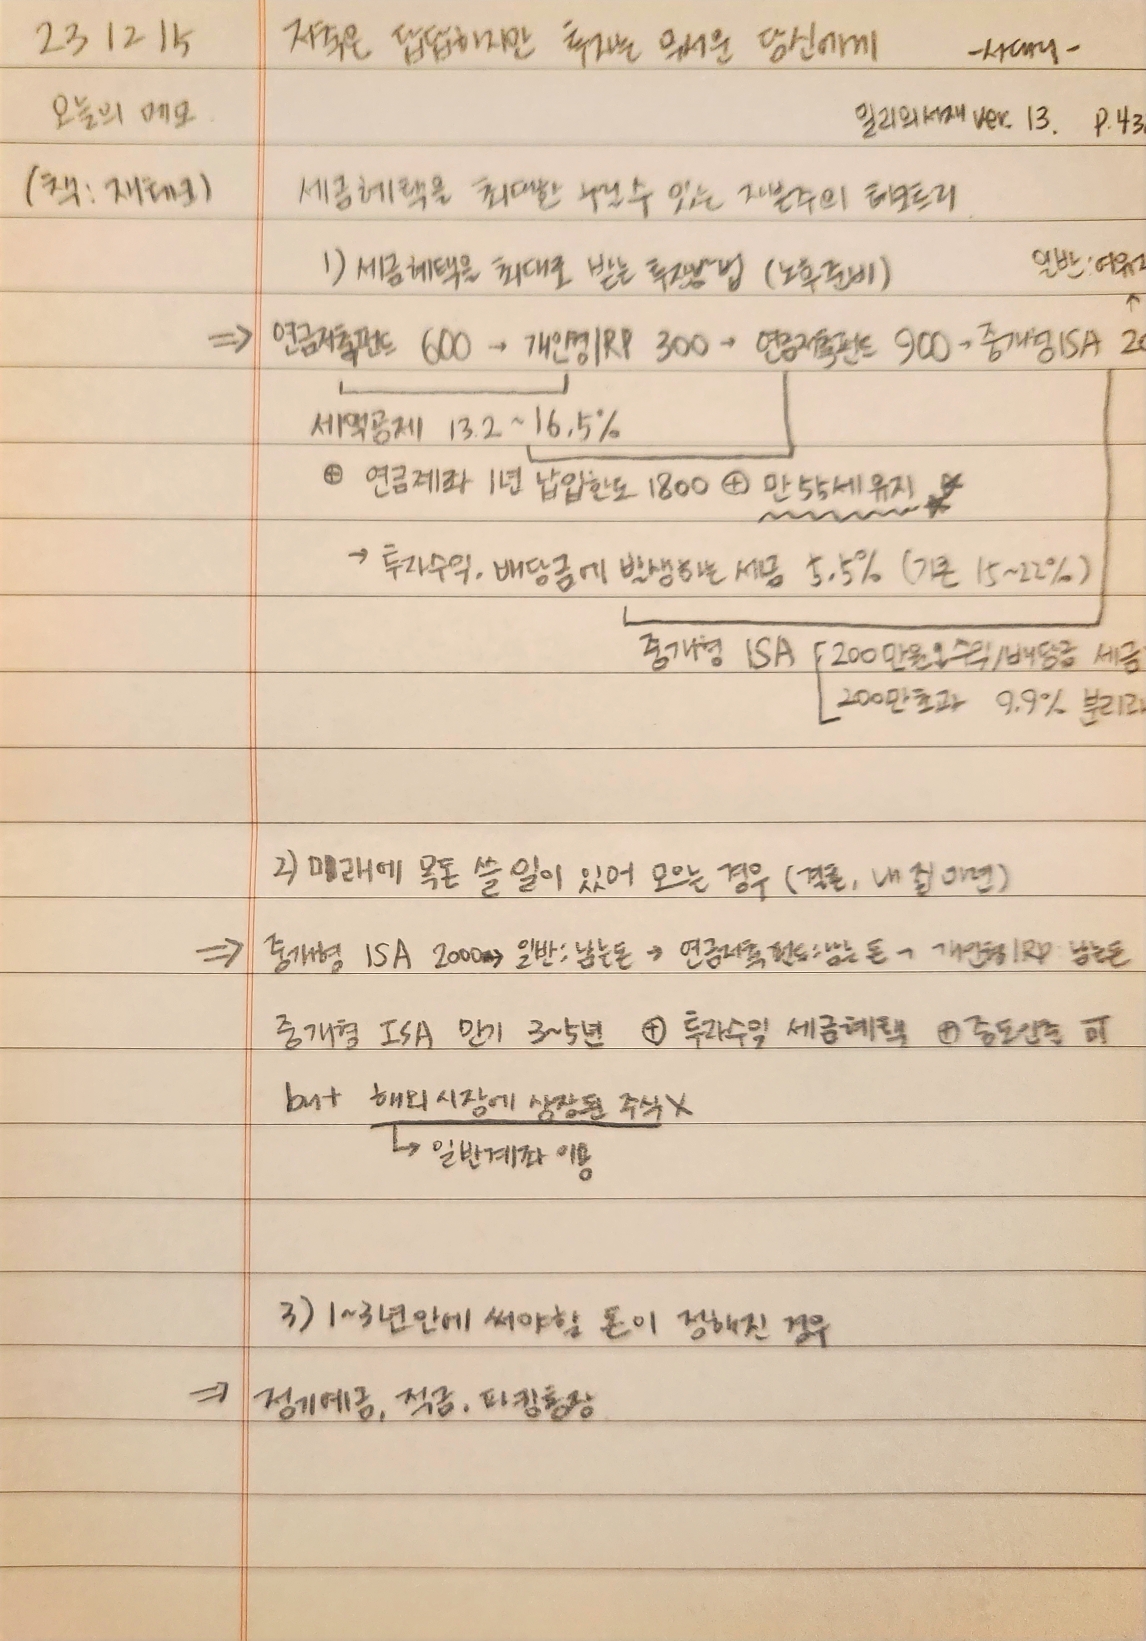 23 12 15 저축은 답답하지만 투자는 무서운 당신에게 -서대리-
오늘의 메모
밀리의서재 ver. 13. P.43
(책: 재테크) 세금혜택을 최대한 누릴수 있는 자본주의 테크트리
1) 세금혜택을 최대로 받는 투자방법 (노후준비)
일반:여유
↑
⇒ 연금저축펀드 600 → 개인형IRP 300 → 연금저축펀드 900 → 중개형ISA 20
세액공제 13.2 ~ 16.5%
⊕ 연금계좌 1년 납입한도 1800 ⊕ 만 55세 유지
→ 투자수익, 배당금에 발생하는 세금 5.5% (기존 15~22%)
중개형 ISA [ 200만원 수익/배당금 세금
200만초과 9.9% 분리과
2) 미래에 목돈 쓸 일이 있어 모으는 경우 (결혼, 내 집 마련)
⇒ 중개형 ISA 2000 → 일반: 남는돈 → 연금저축펀드:남는 돈 → 개인형IRP 남는돈
중개형 ISA 만기 3~5년 ⊕ 투자수익 세금혜택 ⊕ 중도인출 可
but 해외시장에 상장된 주식 X
↳ 일반계좌 이용
3) 1~3년안에 써야할 돈이 정해진 경우
⇒ 정기예금, 적금, 파킹통장